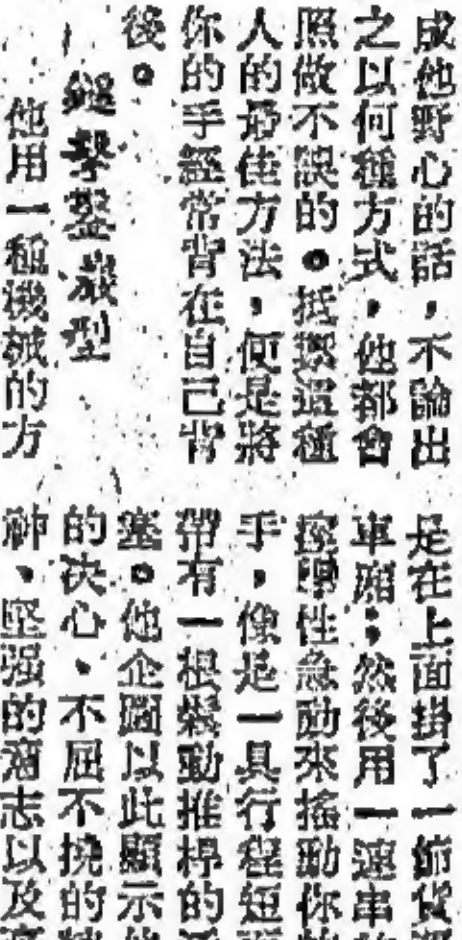 成他野心的話，不論出
之以何種方式，他都會
照做不誤的。抵禦這種
人的最佳方法，便是將
你的手經常背在自己背
後。
鎚擊盤嚴型
他用一種機械的方
是在上面掛了一節貨
車廂；然後用一連串
痙攣性急動來搖動你
手，像是一具行程短
帶有一根裝動推桿的
塞。他企圖以此顯示
的決心、不屈不撓的
神、堅强的意志以及